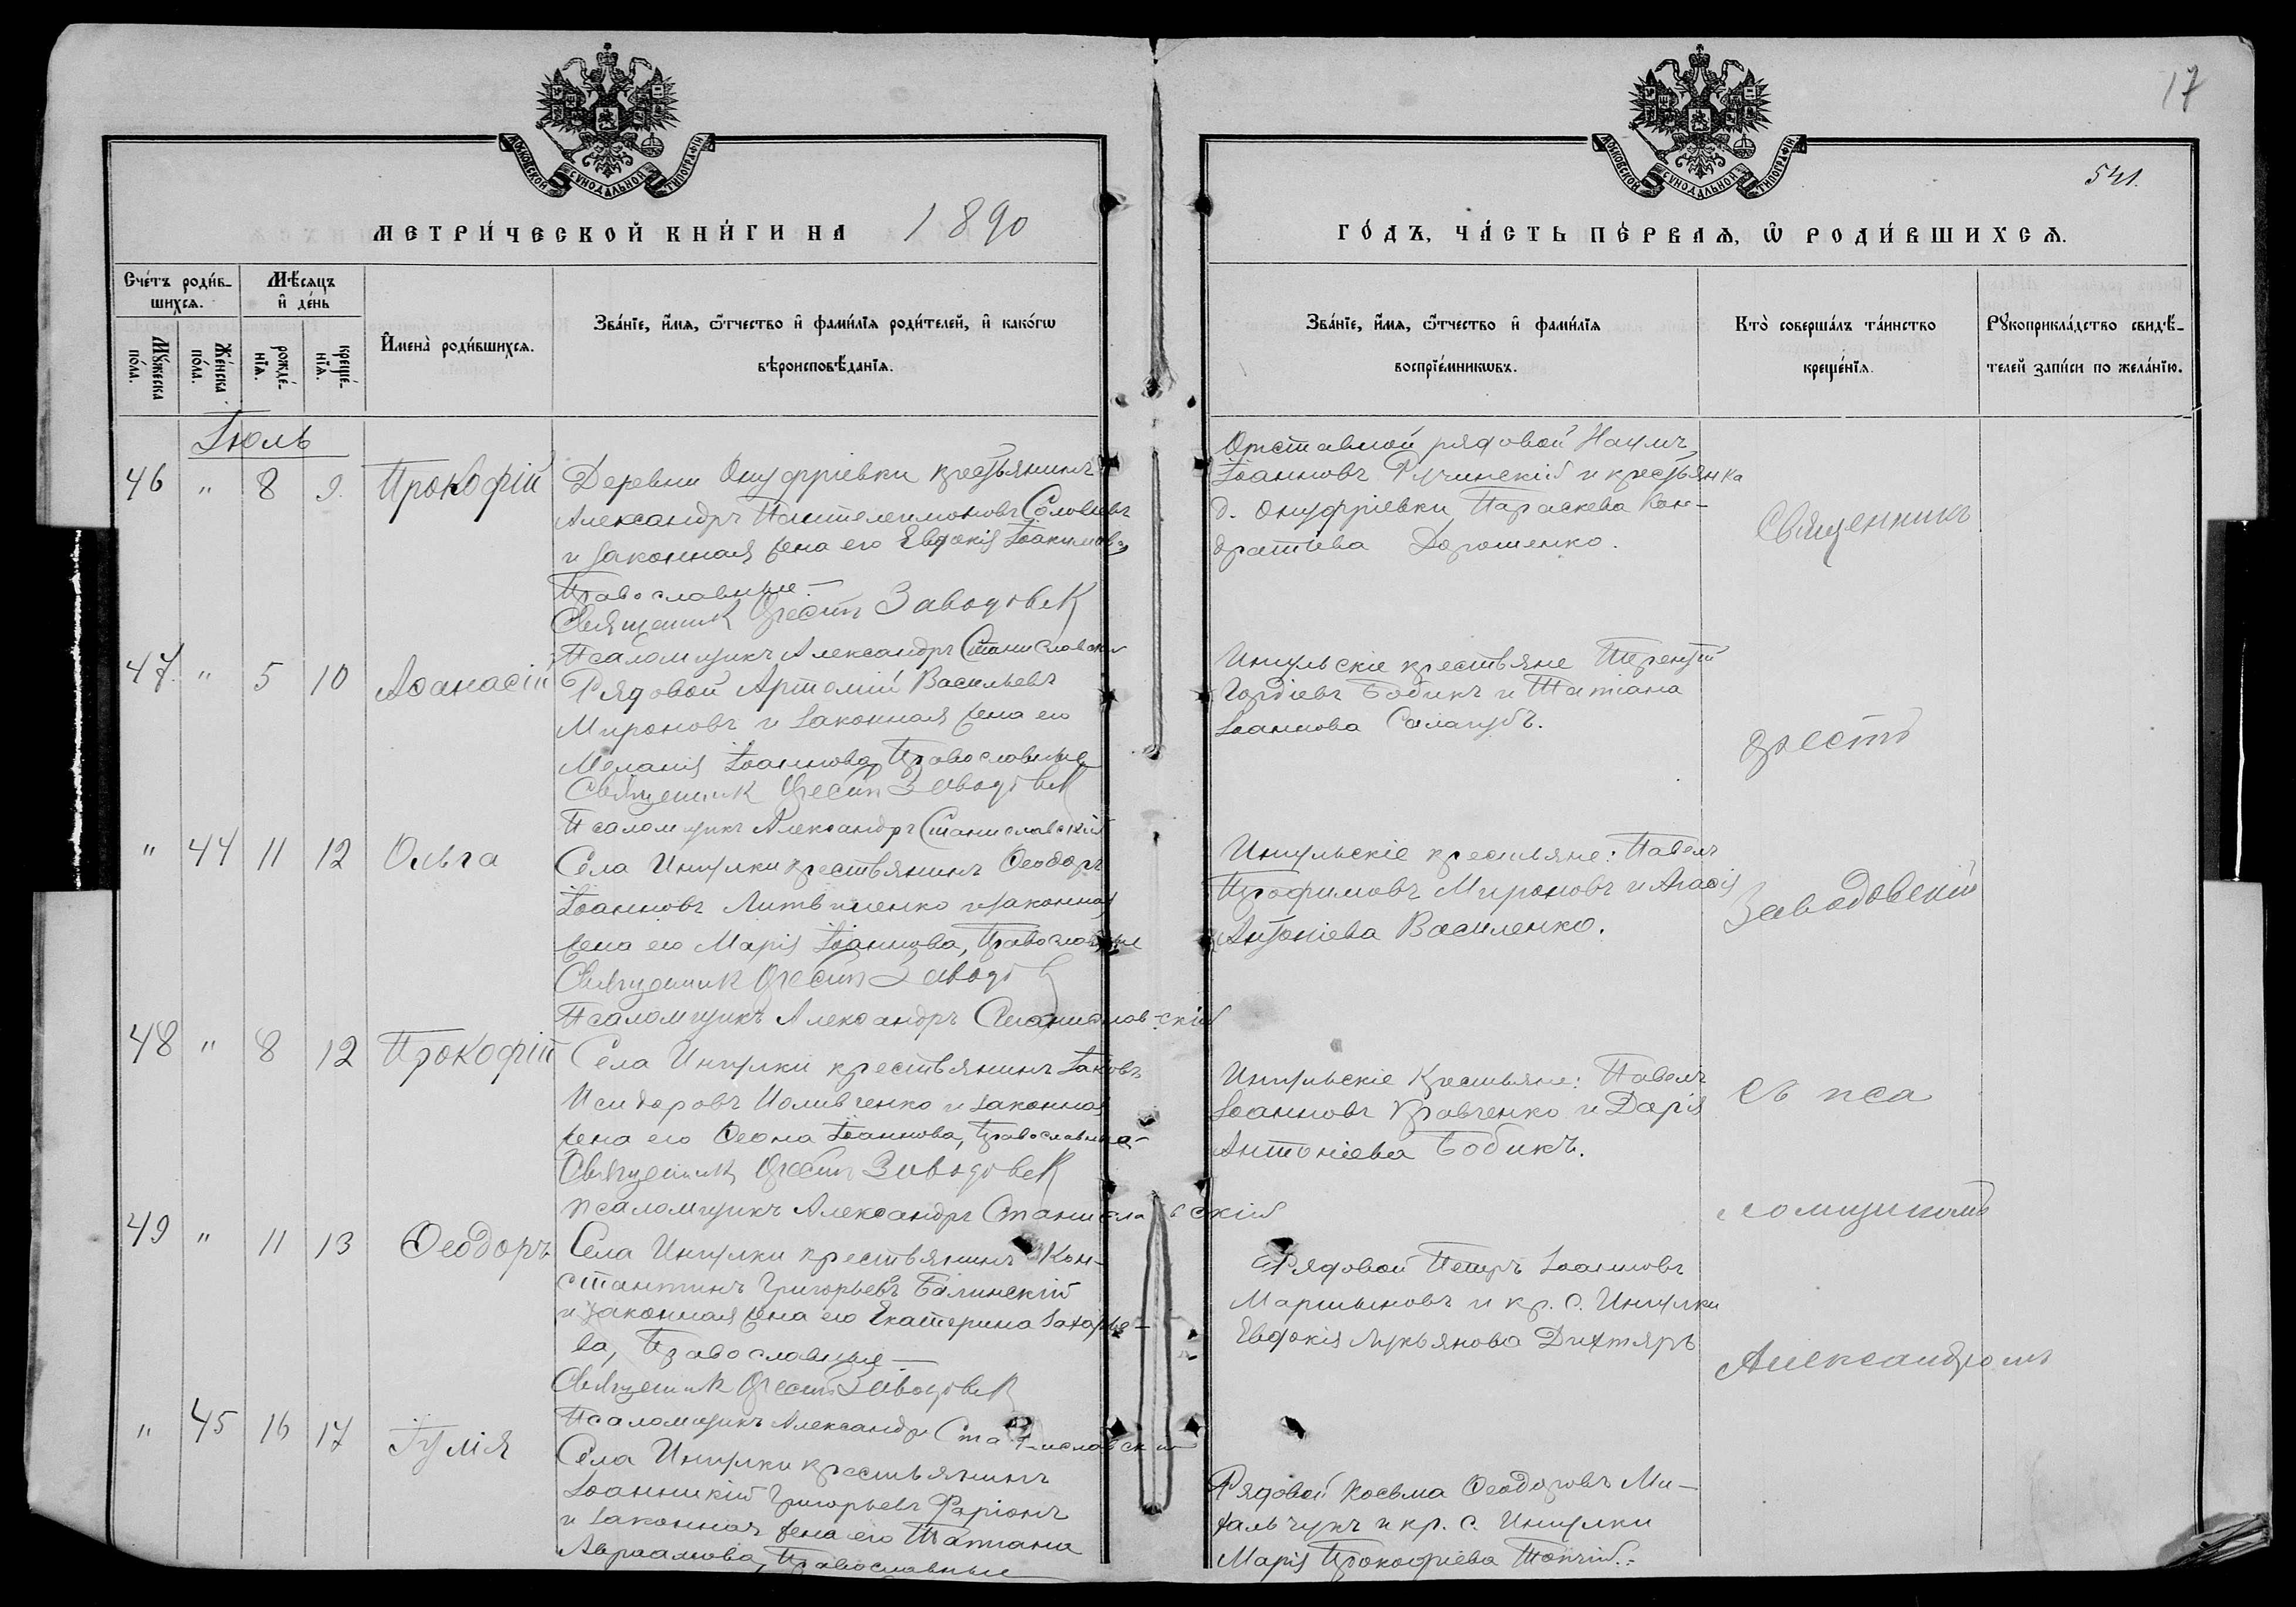 17
541.
МОСКОВСКОЙ СѴНОДАЛЬНОЙ ТИПОГРАФІИ
МОСКОВСКОЙ СѴНОДАЛЬНОЙ ТИПОГРАФІИ
МЕТРИ́ЧЕСКОЙ КНИ́ГИ НА 1890
ГО́ДЪ, ЧА́СТЬ ПЕ́РВАѦ, Ѡ҆ РОДИ́ВШИХСѦ.
Сче́тъ роди́в-
шихсѧ.
Мѣ́сѧцъ
и҆ де́нь
И҆мена̀ роди́вшихсѧ.
Зва́нїе, и҆́мѧ, ѻ҆́тчество и҆ фами́лїѧ роди́телей, и҆ како́гѡ
вѣроисповѣ́данїѧ.
Му́жеска
по́ла.
Же́нска
по́ла.
рожде́-
нїѧ.
креще́-
нїѧ.
Зва́нїе, и҆́мѧ, ѻ҆́тчество и҆ фами́лїѧ
воспрїе́мникѡвъ.
Кто̀ соверша́лъ та́инство
креще́нїѧ.
Рꙋкоприкла́дство свидѣ́-
телей за́писи по жела́нїю.
Іюль
46 " 8 9. Прокофій
Деревни Онуфріевки крестьянинъ
Александръ Пантелеимоновъ Соловьевъ
и законная жена его Евдокія Іоакимова
Православные.
Священникъ Орестъ Заводовск
Псаломщикъ Александръ Станиславски
Отставной рядовой Наумъ
Іоанновъ Ручинскій и крестьянка
д. Онуфріевки Параскева Кон-
дратіева Дорошенко.
47. " 5 10 Аѳанасій
Рядовой Артемій Васильевъ
Мироновъ и законная жена его
Меланія Іоаннова, Православные
Священникъ Орестъ Заводовск
Псаломщикъ Александръ Станиславскій
Ингульскіе крестьяне Терентій
Гордіевъ Бобикъ и Татіана
Іоаннова Салагубъ.
" 44 11 12 Ольга
Села Ингулки крестьянинъ Ѳеодоръ
Іоанновъ Литвиненко и законная
жена его Марія Іоаннова, Православные
Священникъ Орестъ Заводов
Псаломщикъ Александръ Станиславскій
Ингульскіе крестьяне: Павелъ
Трофимовъ Мироновъ и Агаѳія
Антоніева Василенко.
48 " 8 12 Прокофій
Села Ингулки крестьянинъ Іаковъ
Исидоровъ Иоливченко и законная
жена его Іоаннова, Православные
Священникъ Орестъ Заводовск
Псаломщикъ Александръ Станиславскій
Ингульскіе Крестьяне: Павелъ
Іоанновъ Кравченко и Дарія
Антоніева Бобикъ.
49 " 11 13 Ѳеодоръ
Села Ингулки крестьянинъ Кон-
стантинъ Григорьевъ Балинскій
и законная жена его Екатерина Захарье-
ва, Православные
Священникъ Орестъ Заводовск
Псаломщикъ Александръ Станиславскій
Рядовой Петръ Іоанновъ
Мартыновъ и кр. с. Ингулки
Евдокія Лукьянова Дихтяръ
" 45 16 17 Іулія
Села Ингулки крестьянинъ
Іоанникій Григорьевъ Фаріонъ
и законная жена его Татіана
Авраамова, Православные
Рядовой Косьма Ѳеодоровъ Ми-
хальчукъ и кр. с. Ингулки
Марія Прокофіева Топчій.
Священникъ
Орестъ
Заводовскій
съ пса
ломщикомъ
Александромъ